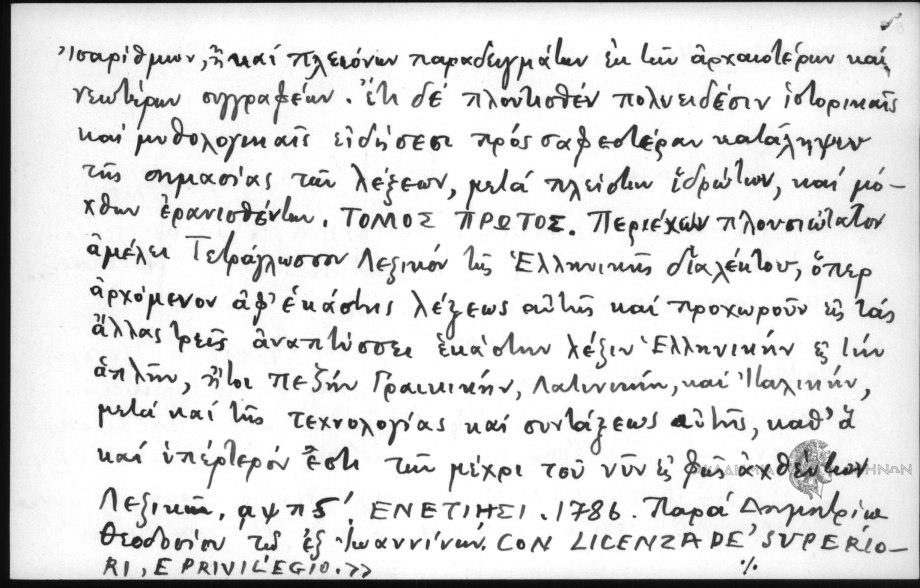 Ἰσαρίθμων, ἢ καί πλειόνων παραδειγμάτων ἐκ τῶν ἀρχαιοτέρων καί
νεωτέρων συγγραφέων. Ἔτι δέ πλουτισθέν πολυειδέσιν ἱστορικαῖς
καί μυθολογικαῖς εἰδήσεσι πρός σαφεστέραν κατάληψιν
τῆς σημασίας τῶν λέξεων, μετά πλείστων ἱδρώτων, καί μό-
χθων ἐρανισθέντων. ΤΟΜΟΣ ΠΡΩΤΟΣ. Περιέχων πλουσιώτατον
ἀμέλει Τετράγλωσσον Λεξικόν τῆς Ἑλληνικῆς διαλέκτου, ὅπερ
ἀρχόμενον ἀφ' ἑκάστης λέξεως αὐτῆς καί προχωροῦν εἰς τάς
ἄλλας τρεῖς ἀναπτύσσει ἑκάστην λέξιν Ἑλληνικήν εἰς τήν
ἁπλῆν, ἤτοι πεζήν Γραικικήν, Λατινικήν, καί Ἰταλικήν,
μετά καί τῆς τεχνολογίας καί συντάξεως αὐτῆς, καθ' ἅ
καί ὑπέρτερόν ἔστι τῶν μέχρι τοῦ νῦν εἰς φῶς ἀχθέντων
Λεξικῶν. αψπς' ΕΝΕΤΙΗΣΙ. 1786. Παρά Δημητρίῳ
Θεοδοσίου τῷ ἐξ Ἰωαννίνων. CON LICENZA DE' SUPERIO-
RI, E PRIVILEGIO.>>
%